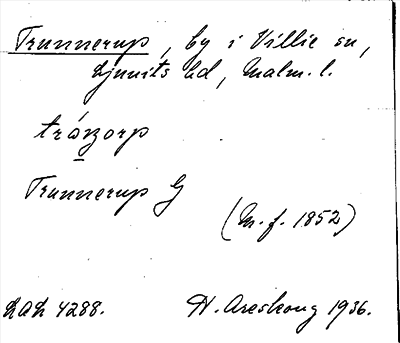 Trunnerup, by i Villie sn,
Ljunits hd, Malm. l.
Trunnerup G
(M. f. 1852)
LAL 4288. N. Areskoug 1936.